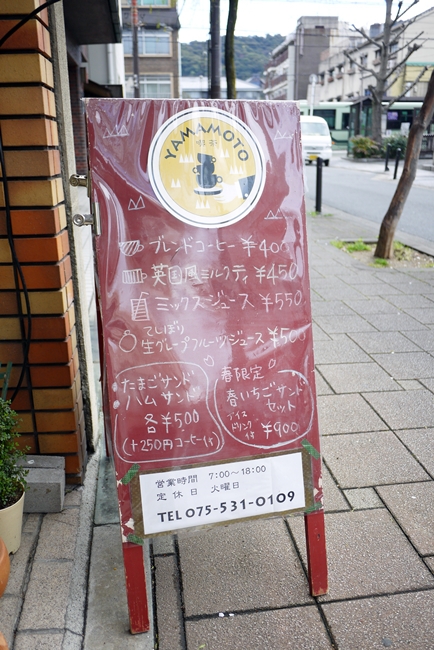 YAMAMOTO
喫茶
ブレンドコーヒー ¥400
英国風ミルクティ ¥450
ミックスジュース ¥550
てしぼり
生グレープフルーツジュース ¥500
たまごサンド
ハムサンド
各¥500
(+250円コーヒー付)
春限定
春いちごサンド
セット
アイス
ドリンク
付 ¥900
営業時間 7:00〜18:00
定休日 火曜日
TEL 075-531-0109